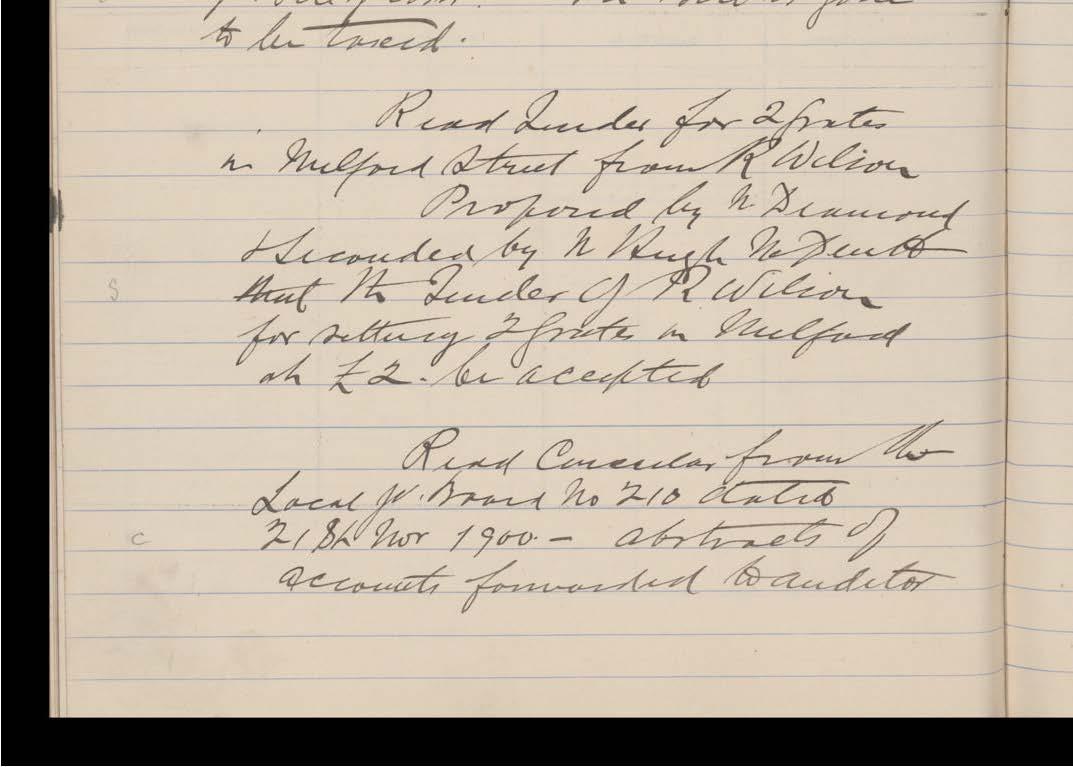 to be taxed.
Read Tender for 2 Grates
in Milford Street from R Wilson
Proposed by N Diamond
& Seconded by N Hugh
that the Tender of R Wilson
for setting 2 Grates in Milford
at £2. be accepted
Read Circular from the
S
Local G. Board No 210 dated
21st Nov 1900 — abstracts of
C
accounts forwarded to auditor